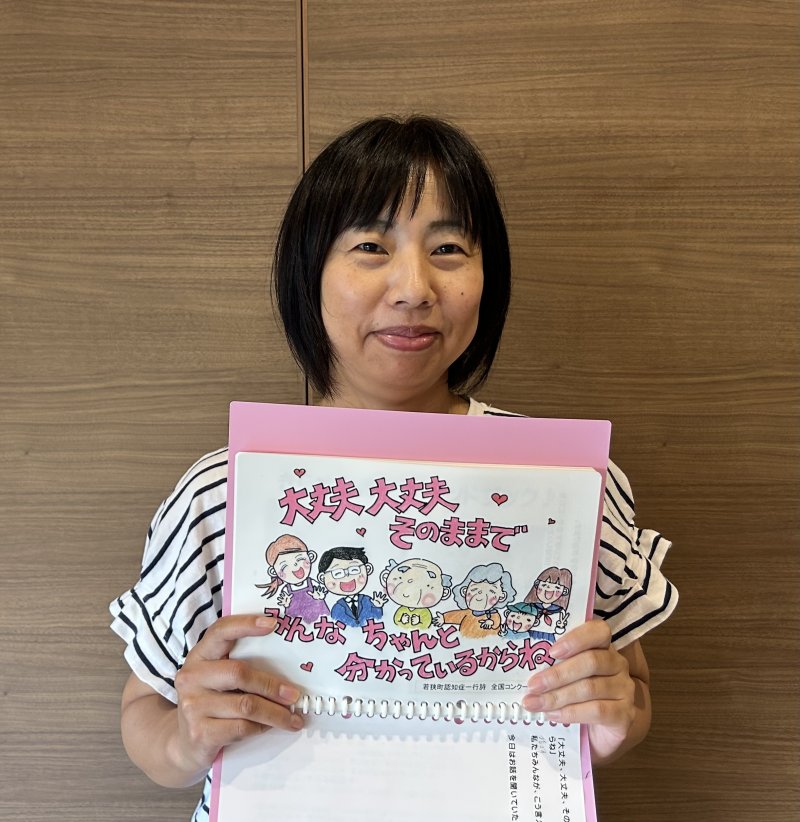 大丈夫 大丈夫
そのままで
みんな ちゃんと
分かっているからね
若狭町認知症一行詩 全国コンク
「大丈夫、大丈夫、その
らね」
私たちみんなが、こう言
今日はお話を聞いていた